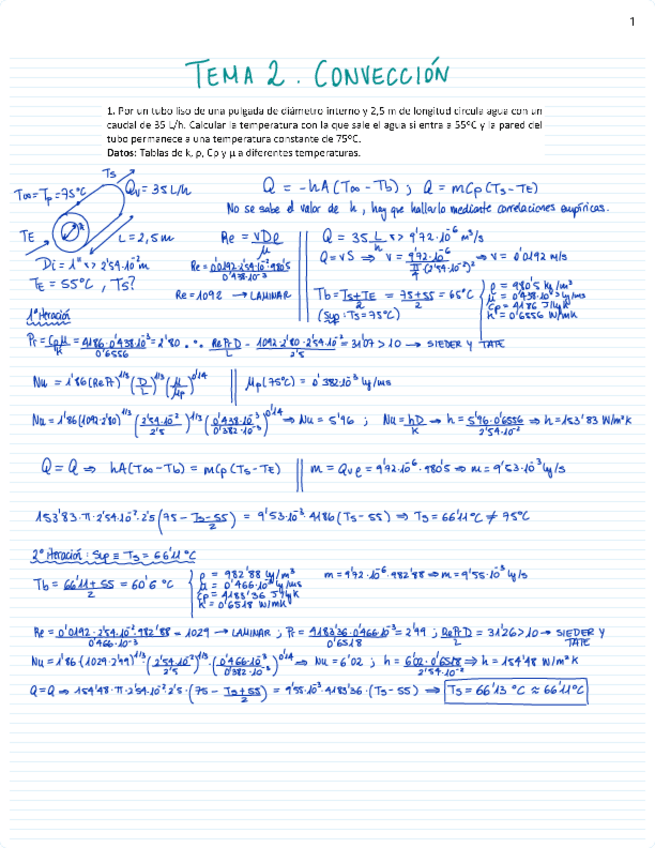 1
TEMA 2. CONVECCIÓN
1. Por un tubo liso de una pulgada de diámetro interno y 2,5 m de longitud circula agua con un
caudal de 35 L/h. Calcular la temperatura con la que sale el agua si entra a 55ºC y la pared del
tubo permanece a una temperatura constante de 75ºC.
Datos: Tablas de k, ρ, Cp y μ a diferentes temperaturas.
TS
T∞=Tp=75ºC
Qv=35 L/h
TE
L=2,5m
Di = 1" => 2'54·10⁻² m
TE = 55ºC, Ts?
Q = -hA(T∞-Tb) ; Q = mCp(Ts-TE)
No se sabe el valor de h, hay que hallarlo mediante correlaciones empíricas.
Re = vDρ/μ
Re = 0'0192·2'54·10⁻²·980'5/0'438·10⁻³
Re = 1092 → LAMINAR
Q = 35 L/h => 9'72·10⁻⁶ m³/s
Q = vS ⇒ v = 9'72·10⁻⁶/(π/4 (2'54·10⁻²)²) ⇒ v = 0'0192 m/s
Tb = (Ts+TE)/2 = (75+55)/2 = 65ºC
(Sup: Ts=75ºC)
ρ = 980'5 kg/m³
μ = 0'438·10⁻³ kg/ms
Cp = 4186 J/kgK
k = 0'6556 W/mK
1ª Iteración
Pr = Cpμ/k = 4186·0'438·10⁻³/0'6556 = 2'80 ∴ RePrD/L = 1092·2'80·2'54·10⁻²/2'5 = 31'07 > 10 → SIEDER Y TATE
Nu = 1'86 (RePr)^1/3 (D/L)^1/3 (μ/μp)^0'14 || μp(75ºC) = 0'382·10⁻³ kg/ms
Nu = 1'86 (1092·2'80)^1/3 (2'54·10⁻²/2'5)^1/3 (0'438·10⁻³/0'382·10⁻³)^0'14 ⇒ Nu = 5'96 ; Nu = hD/k → h = 5'96·0'6556/2'54·10⁻² ⇒ h = 153'83 W/m²K
Q = Q ⇒ hA(T∞-Tb) = mCp(Ts-TE) || m = Qvρ = 9'72·10⁻⁶·980'5 ⇒ m = 9'53·10⁻³ kg/s
153'83·π·2'54·10⁻²·2'5 (75 - (Ts-55)/2) = 9'53·10⁻³·4186 (Ts-55) ⇒ Ts = 66'11ºC ≠ 75ºC
2ª Iteración: Sup ≡ Ts = 66'11ºC
Tb = (66'11+55)/2 = 60'6 ºC
ρ = 982'88 kg/m³
μ = 0'466·10⁻³ kg/ms
Cp = 4183'36 J/kgK
k = 0'6518 W/mK
m = 9'72·10⁻⁶·982'88 ⇒ m = 9'55·10⁻³ kg/s
Re = 0'0192·2'54·10⁻²·982'88/0'466·10⁻³ = 1029 → LAMINAR ; Pr = 4183'36·0'466·10⁻³/0'6518 = 2'99 ; RePrD/L = 31'26 > 10 → SIEDER Y TATE
Nu = 1'86 (1029·2'99)^1/3 · (2'54·10⁻²/2'5)^1/3 · (0'466·10⁻³/0'382·10⁻³)^0'14 ⇒ Nu = 6'02 ; h = 6'02·0'6518/2'54·10⁻² ⇒ h = 154'48 W/m²K
Q = Q ⇒ 154'48·π·2'54·10⁻²·2'5·(75 - (Ts+55)/2) = 9'55·10⁻³·4183'36·(Ts-55) ⇒ Ts = 66'13 ºC ≈ 66'11ºC